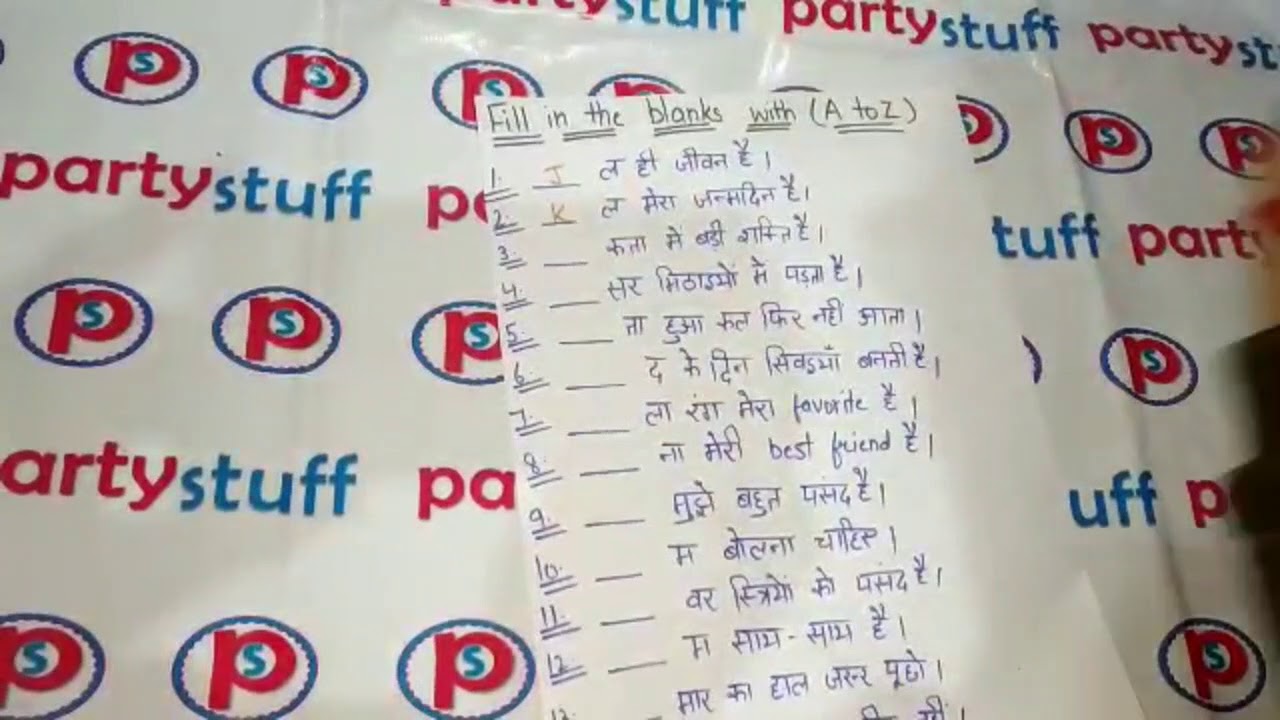 partystuff partystuff partyst
Fill in the blanks with (A to Z)
1. J ल ही जीवन है।
2. K ल मेरा जन्मदिन है।
3. ___ कता में बड़ी शक्ति है।
4. ___ सर मिठाइयों में पड़ता है।
5. ___ ता हुआ कल फिर नहीं आता।
6. ___ द के दिन सिवइयाँ बनती है।
7. ___ ला रंग मेरा favorite है।
8. ___ ना मेरी best friend है।
9. ___ मुझे बहुत पसंद है।
10. ___ म बोलना चाहिए।
11. ___ वर स्त्रियों को पसंद है।
12. ___ म साथ-साथ है।
13. ___ मार का हाल जरूर पूछो।
partystuff
pa
tuff party
artystuff
pa
uff p